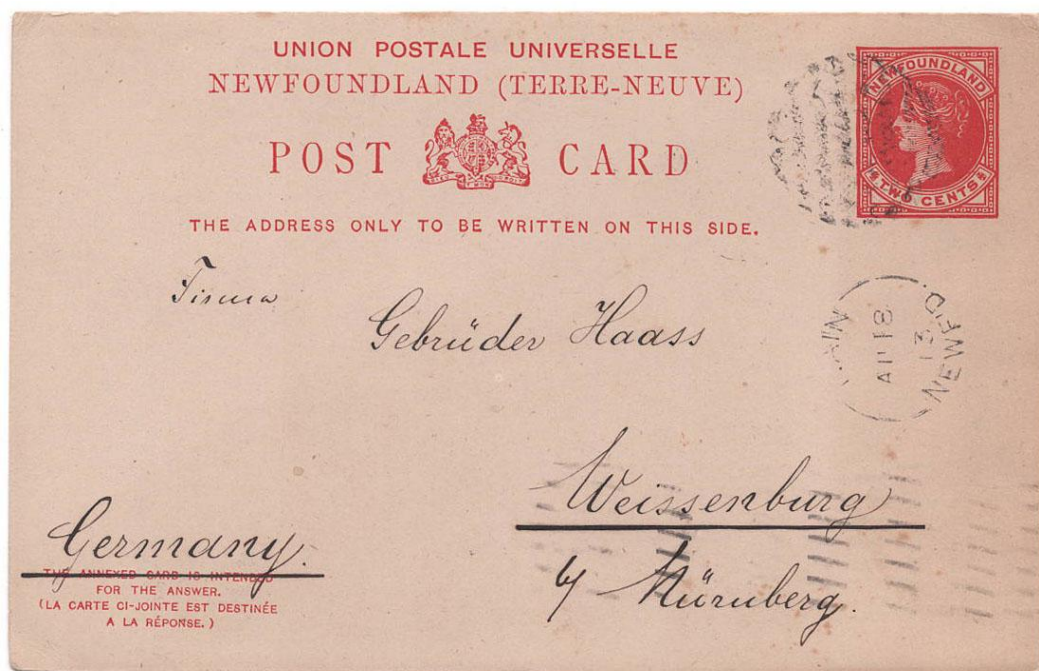 UNION POSTALE UNIVERSELLE
NEWFOUNDLAND (TERRE-NEUVE)
POST CARD
THE ADDRESS ONLY TO BE WRITTEN ON THIS SIDE.
NEWFOUNDLAND
TWO CENTS
Firma
Gebrüder Haass
NEWF'D.
18
13
Weissenburg
Germany.
THE ANNEXED CARD IS INTENDED
FOR THE ANSWER.
(LA CARTE CI-JOINTE EST DESTINÉE
A LA RÉPONSE.)
b/ Nürnberg.